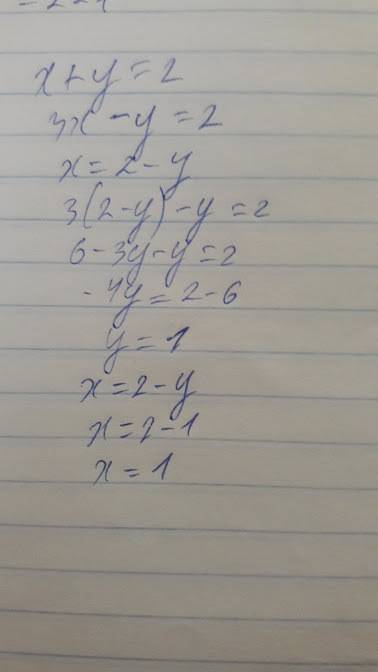 x+y=2
3x-y=2
x=2-y
3(2-y)-y=2
6-3y-y=2
-4y=2-6
y=1
x=2-y
x=2-1
x=1